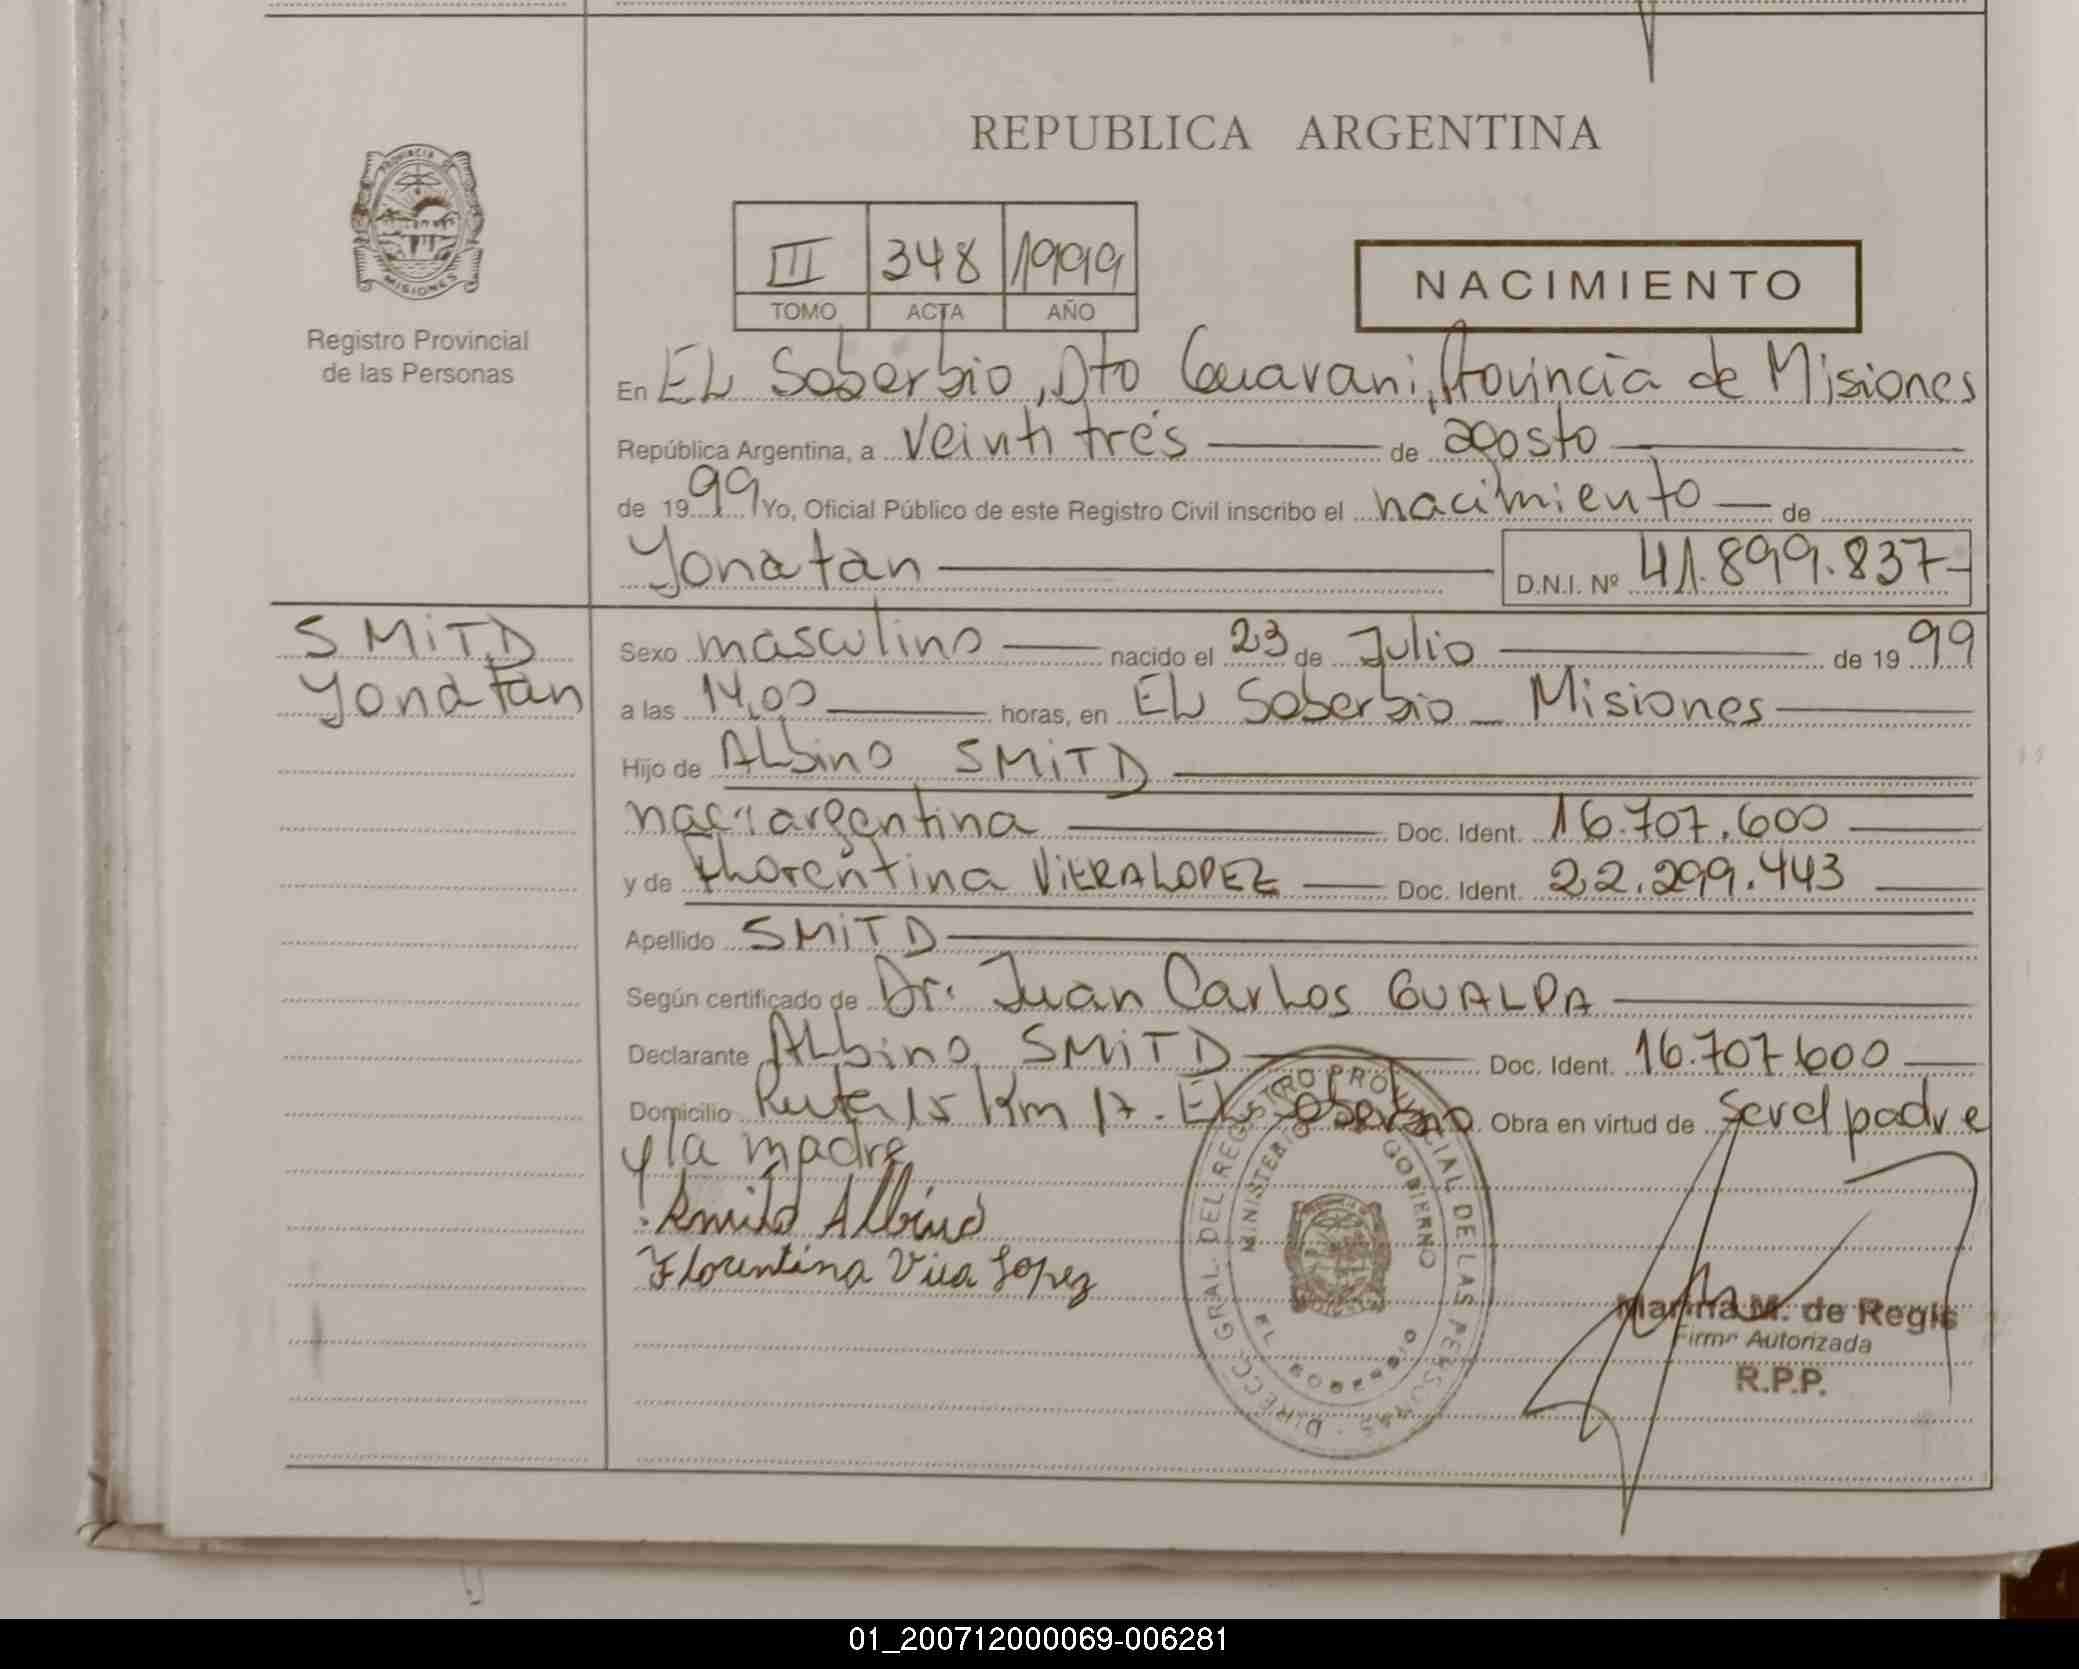 REPUBLICA ARGENTINA
PROVINCIA DE
MISIONES
Registro Provincial
de las Personas
III 348 1999
TOMO ACTA AÑO
NACIMIENTO
En EL Soberbio, Dto Guarani, Provincia de Misiones
República Argentina, a veintitrés de agosto
de 1999 Yo, Oficial Público de este Registro Civil inscribo el nacimiento de
Yonatan D.N.I. Nº 41.899.837
SMiTD
Yonatan
Sexo masculino nacido el 23 de Julio de 1999
a las 14,00 horas, en EL Soberbio - Misiones
Hijo de ALbino SMiTD
argentina Doc. Ident. 16.707.600
y de FLorentina ViERA LOPEZ Doc. Ident. 22.299.443
Apellido SMiTD
Según certificado de Dr. Juan CarLos GUALPA
Declarante ALbino SMiTD Doc. Ident. 16.707.600
Domicilio Ruta 15 Km 17. EL Soberbio Obra en virtud de ser el padre
y la madre
Albino
Florentina Viera Lopez
DIRECC. GRAL. DEL REGISTRO PROVINCIAL DE LAS PERSONAS
MINISTERIO GOBIERNO
EL SOBERBIO
Marina M. de Regis
Firma Autorizada
R.P.P.
01_200712000069-006281